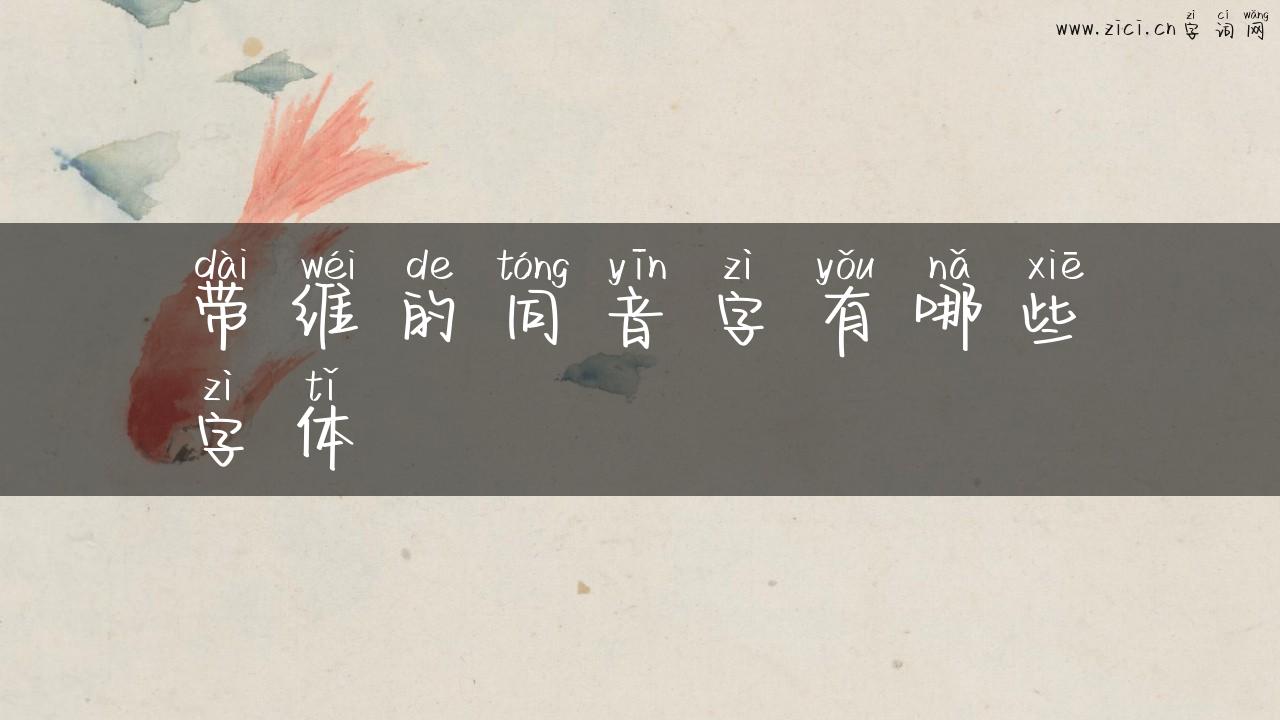 zì cí wǎng
www.zici.cn 字词网
dài wéi de tóng yīn zì yǒu nǎ xiē
带维的同音字有哪些
zì tǐ
字体